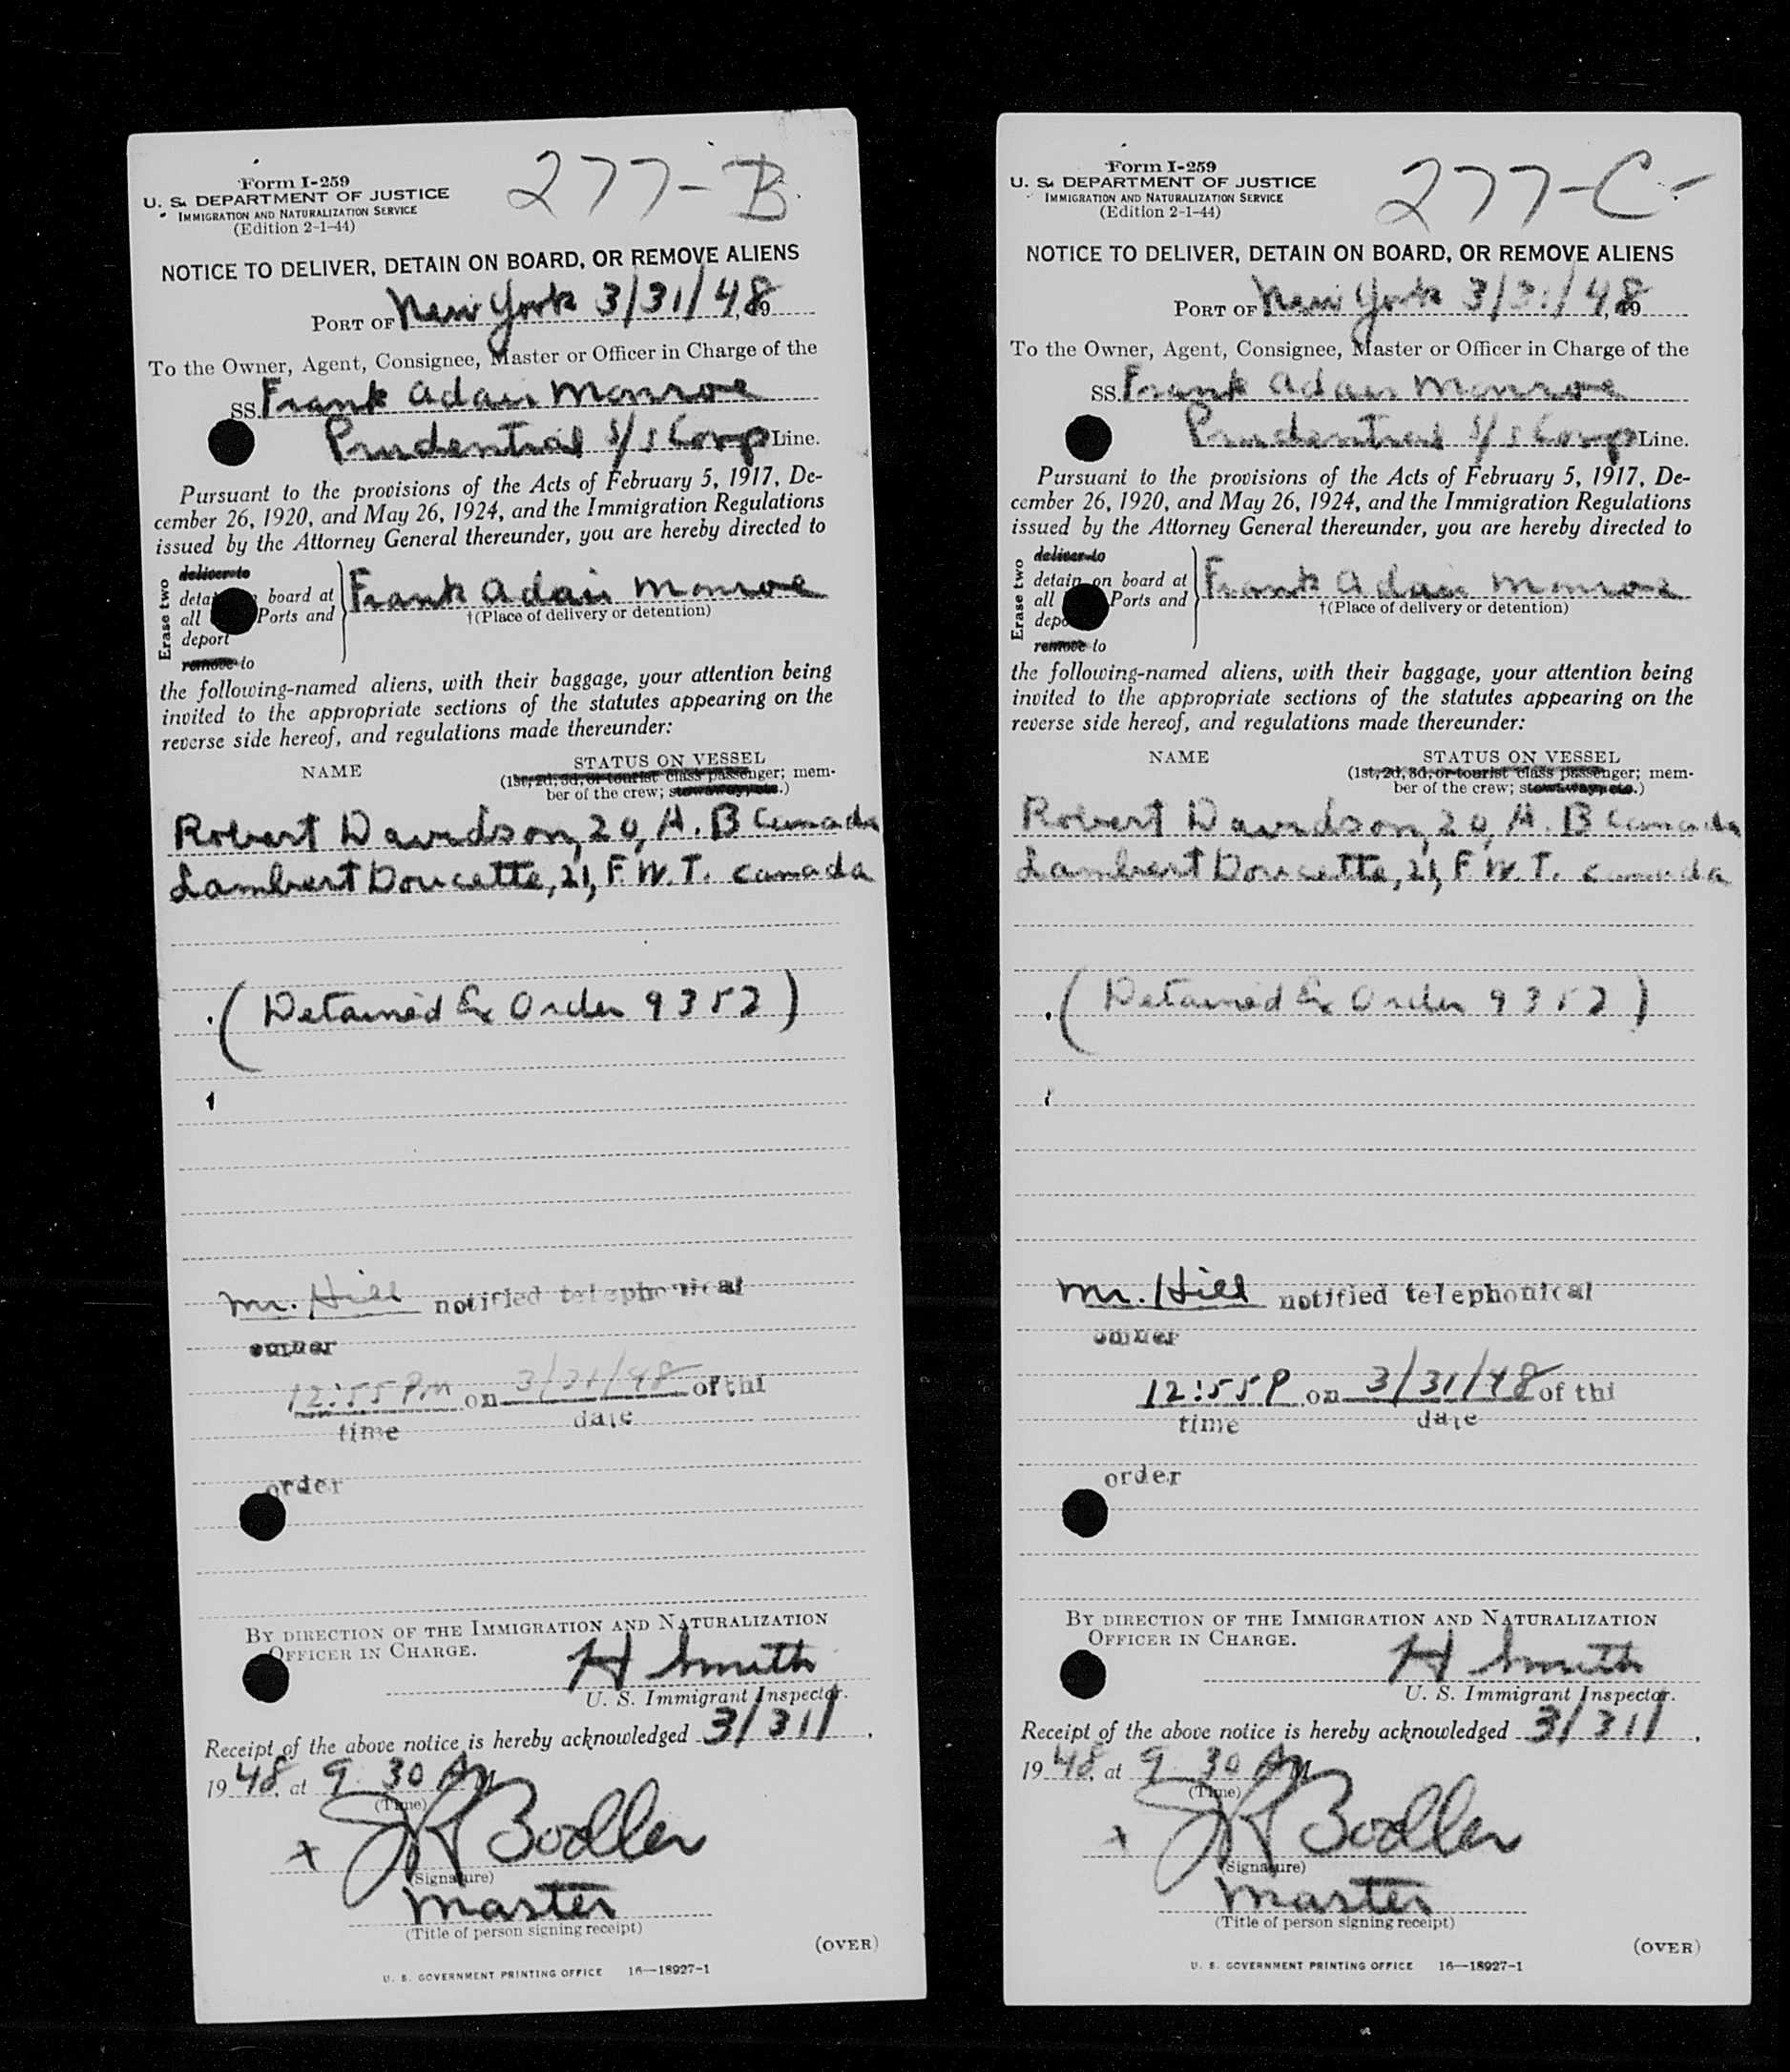 277-B.
Form I-259
U. S. DEPARTMENT OF JUSTICE
IMMIGRATION AND NATURALIZATION SERVICE
(Edition 2-1-44)
NOTICE TO DELIVER, DETAIN ON BOARD, OR REMOVE ALIENS
PORT OF New York 3/31/48, 19
To the Owner, Agent, Consignee, Master or Officer in Charge of the
SS. Frank Adair Monroe
Prudential S/S Corp Line.
Pursuant to the provisions of the Acts of February 5, 1917, De-
cember 26, 1920, and May 26, 1924, and the Immigration Regulations
issued by the Attorney General thereunder, you are hereby directed to
Erase two
deliver to
board at
all Ports and
deport
remove to
Frank Adair Monroe
†(Place of delivery or detention)
the following-named aliens, with their baggage, your attention being
invited to the appropriate sections of the statutes appearing on the
reverse side hereof, and regulations made thereunder:
NAME STATUS ON VESSEL
(1st, 2d, 3d, or tourist class passenger; mem-
ber of the crew; stowaway, etc.)
Robert Davidson, 20, A.B Canada
Lambert Doucette, 21, F.W.T. Canada
(Detained Ex Order 9352)
Mr. Hill notified telephonical
owner
12:55 PM on 3/31/48 of thi
time date
order
BY DIRECTION OF THE IMMIGRATION AND NATURALIZATION
OFFICER IN CHARGE.
H Smith
U. S. Immigrant Inspector.
Receipt of the above notice is hereby acknowledged 3/31/,
1948, at 9.30 AM
(Time)
x JK Bodler
(Signature)
Master
(Title of person signing receipt)
(OVER)
U. S. GOVERNMENT PRINTING OFFICE 16—18927-1
277-C.-
Form I-259
U. S. DEPARTMENT OF JUSTICE
IMMIGRATION AND NATURALIZATION SERVICE
(Edition 2-1-44)
NOTICE TO DELIVER, DETAIN ON BOARD, OR REMOVE ALIENS
PORT OF New York 3/31/48, 19
To the Owner, Agent, Consignee, Master or Officer in Charge of the
SS. Frank Adair Monroe
Prudential S/S Corp Line.
Pursuant to the provisions of the Acts of February 5, 1917, De-
cember 26, 1920, and May 26, 1924, and the Immigration Regulations
issued by the Attorney General thereunder, you are hereby directed to
Erase two
deliver to
detain on board at
all Ports and
remove to
Frank Adair Monroe
†(Place of delivery or detention)
the following-named aliens, with their baggage, your attention being
invited to the appropriate sections of the statutes appearing on the
reverse side hereof, and regulations made thereunder:
NAME STATUS ON VESSEL
(1st, 2d, 3d, or tourist class passenger; mem-
ber of the crew; stowaway, etc.)
Robert Davidson, 20, A.B Canada
Lambert Doucette, 21, F.W.T. Canada
(Detained Ex Order 9352)
Mr. Hill notified telephonical
owner
12:55P on 3/31/48 of thi
time date
order
BY DIRECTION OF THE IMMIGRATION AND NATURALIZATION
OFFICER IN CHARGE.
H Smith
U. S. Immigrant Inspector.
Receipt of the above notice is hereby acknowledged 3/31/,
1948, at 9.30 AM
(Time)
x JK Bodler
(Signature)
Master
(Title of person signing receipt)
(OVER)
U. S. GOVERNMENT PRINTING OFFICE 16—18927-1